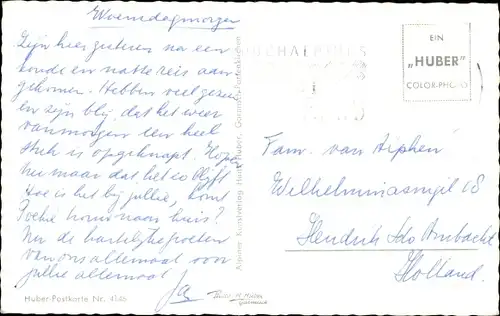 Woensdagmorgen
Zijn hier gisteren na een
koude en natte reis aan
gekomen. Hebben veel gezien
en zijn blij dat het weer
vanmorgen een heel
stuk is opgeknapt. Hopen
nu maar dat het zo blijft
Hoe is het bij jullie, komt
naar huis?
Nu de hartelijke groeten
van ons allemaal voor
jullie allemaal
Ja
Huber-Postkarte Nr. 4146
Photo H. Huber
Garmisch
Alpiner Kunstverlag Hans Huber, Garmisch-Partenkirchen
EIN
„HUBER"
COLOR-PHOTO
Fam. van
Wilhelminasingel 18
Hendrik Ido Ambacht
Holland.